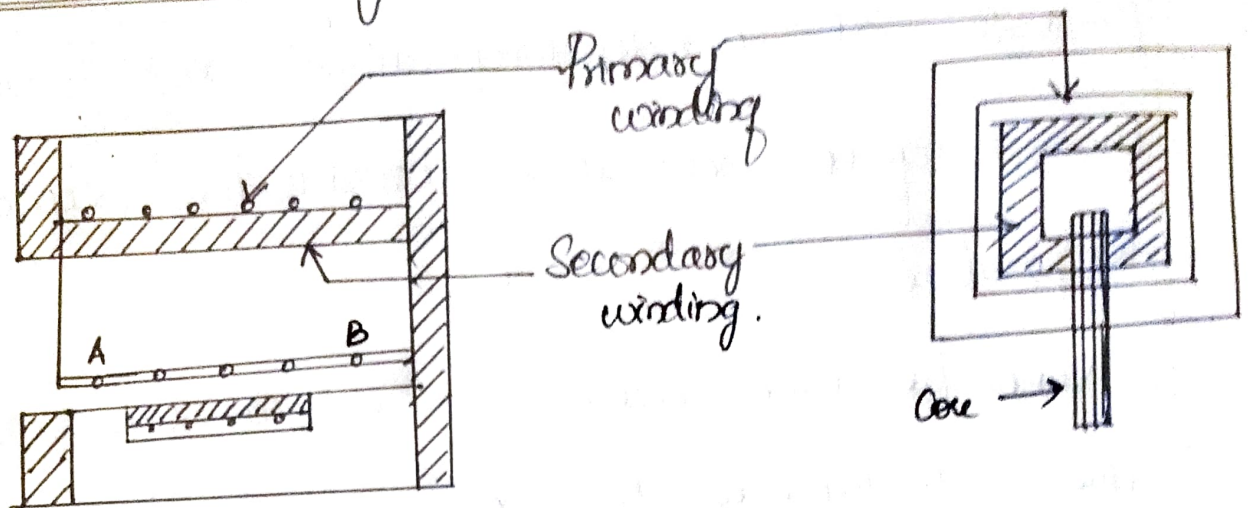 Primary
winding
Secondary
winding.
A
B
Core